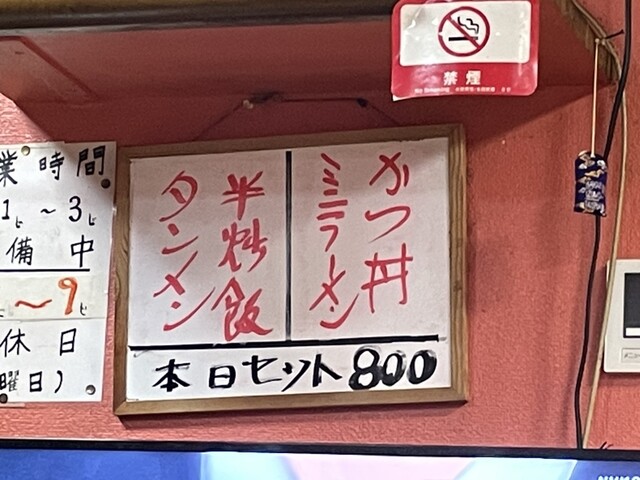 禁煙
No Smoking
業時間
1じ～3じ
備中
～9じ
休日
曜日）
かつ丼
ミニラーメン
半炒飯
タンメン
本日セット800